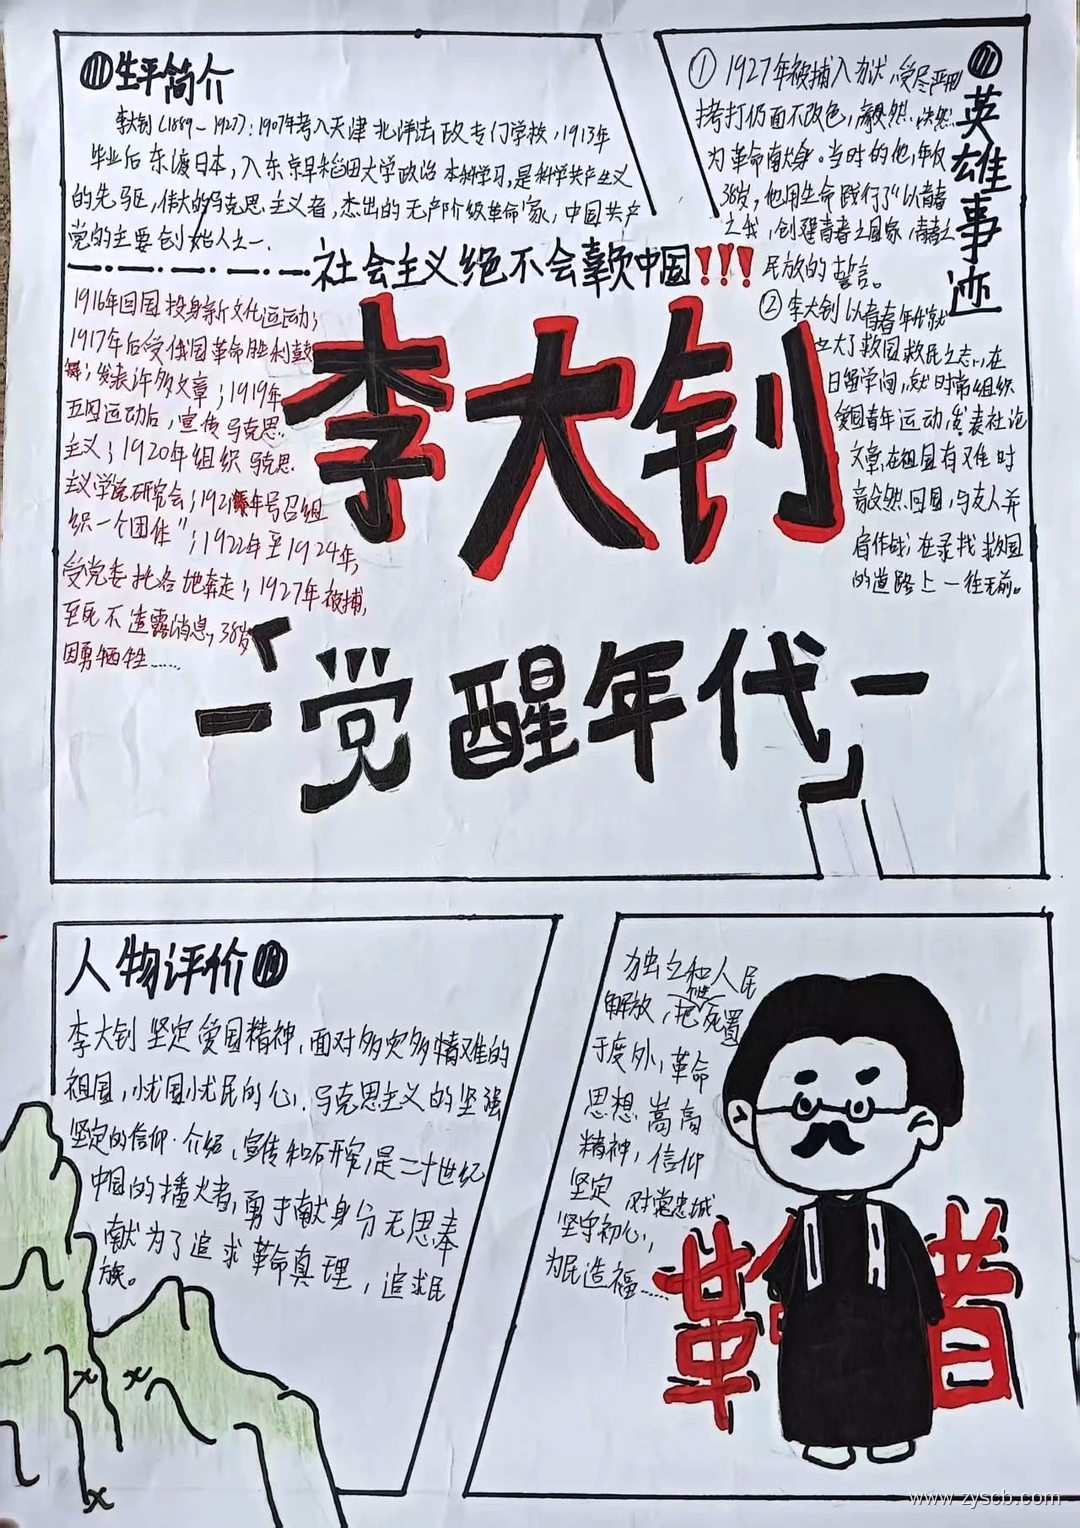 生平简介
李大钊(1889-1927):1907年考入天津北洋法政专门学校,1913年
毕业后东渡日本,入东京早稻田大学政治本科学习,是科学共产主义
的先驱,伟大的马克思主义者,杰出的无产阶级革命家,中国共产
党的主要创始人之一.
社会主义绝不会辜负中国!!!
1916年回国投身新文化运动;
1917年后受俄国革命胜利鼓
舞;发表许多文章;1919年
五四运动后,宣传马克思
主义;1920年组织马克思
主义学说研究会;1921年号召组
织一个团体";1922年至1924年,
受党委托各地奔走;1927年被捕,
至死不透露消息,38岁
因勇牺牲……
英雄事迹
① 1927年被捕入狱,受尽严刑
拷打仍面不改色,毅然、决然
为革命献身。当时的他,年仅
38岁,他用生命践行了"以青春
之我,创建青春之国家,青春之
民族的誓言。
② 李大钊以青春年代就
立大了救国救民之志,在
日留学间,就时常组织
爱国青年运动,发表社论
文章,在祖国有难时
毅然回国,与友人并
肩作战,在寻找救国
的道路上一往无前。
李大钊
「-觉醒年代-」
人物评价
李大钊坚定爱国精神,面对多灾多情难的
祖国,忧国忧民的心,马克思主义的坚强
坚定的信仰.介绍、宣传和研究,是二十世纪
中国的播火者,勇于献身分无思奉
献为了追求革命真理,追求民
族。
独立和人民
解放,把死置
于度外,革命
思想 嵩高
精神,信仰
坚定 对党忠诚
坚守初心,
为民造福……
革命者
www.zyscb.com